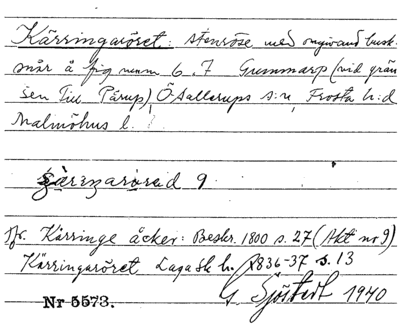 Kärringaröset: stenröse med omgivand busk-
snår å fig num 6, 7 Gummarp (vid grän
sen till Pårup), Ö Sallerups s:n, Frosta h:d
Malmöhus l.
9
Jfr. Kärringe åcker: Beskr. 1800 s. 27 (Akt nr 9)
Kärringaröret Laga sk. h. 1836-37 s. 13
Nr 5573.
G. Sjöstedt 1940